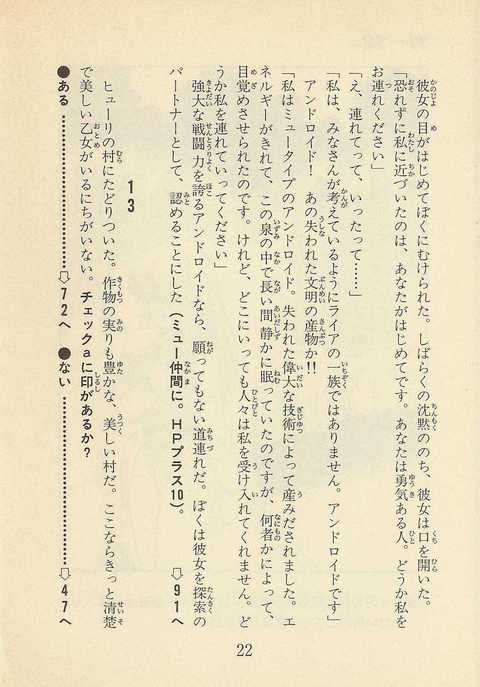 彼女の目がはじめてぼくにむけられた。しばらくの沈黙ののち、彼女は口を開いた。
「恐れずに私に近づいたのは、あなたがはじめてです。あなたは勇気ある人。どうか私を
お連れください」
「え、連れてって、いったって……」
「私は、みなさんが考えているようにライアの一族ではありません。アンドロイドです」
アンドロイド！　あの失われた文明の産物か!!
「私はミュータイプのアンドロイド。失われた偉大な技術によって産みだされました。エ
ネルギーがきれて、この泉の中で長い間静かに眠っていたのですが、何者かによって、
目覚めさせられたのです。けれど、どこにいっても人々は私を受け入れてくれません。ど
うか私を連れていってください」
強大な戦闘力を誇るアンドロイドなら、願ってもない道連れだ。ぼくは彼女を探索の
パートナーとして、認めることにした（ミュー仲間に。ＨＰプラス10）。　⇨９１へ
１３
ヒューリの村にたどりついた。作物の実りも豊かな、美しい村だ。ここならきっと清楚
で美しい乙女がいるにちがいない。チェックａに印があるか？
●ある……………⇨７２へ　●ない……………⇨４７へ
22